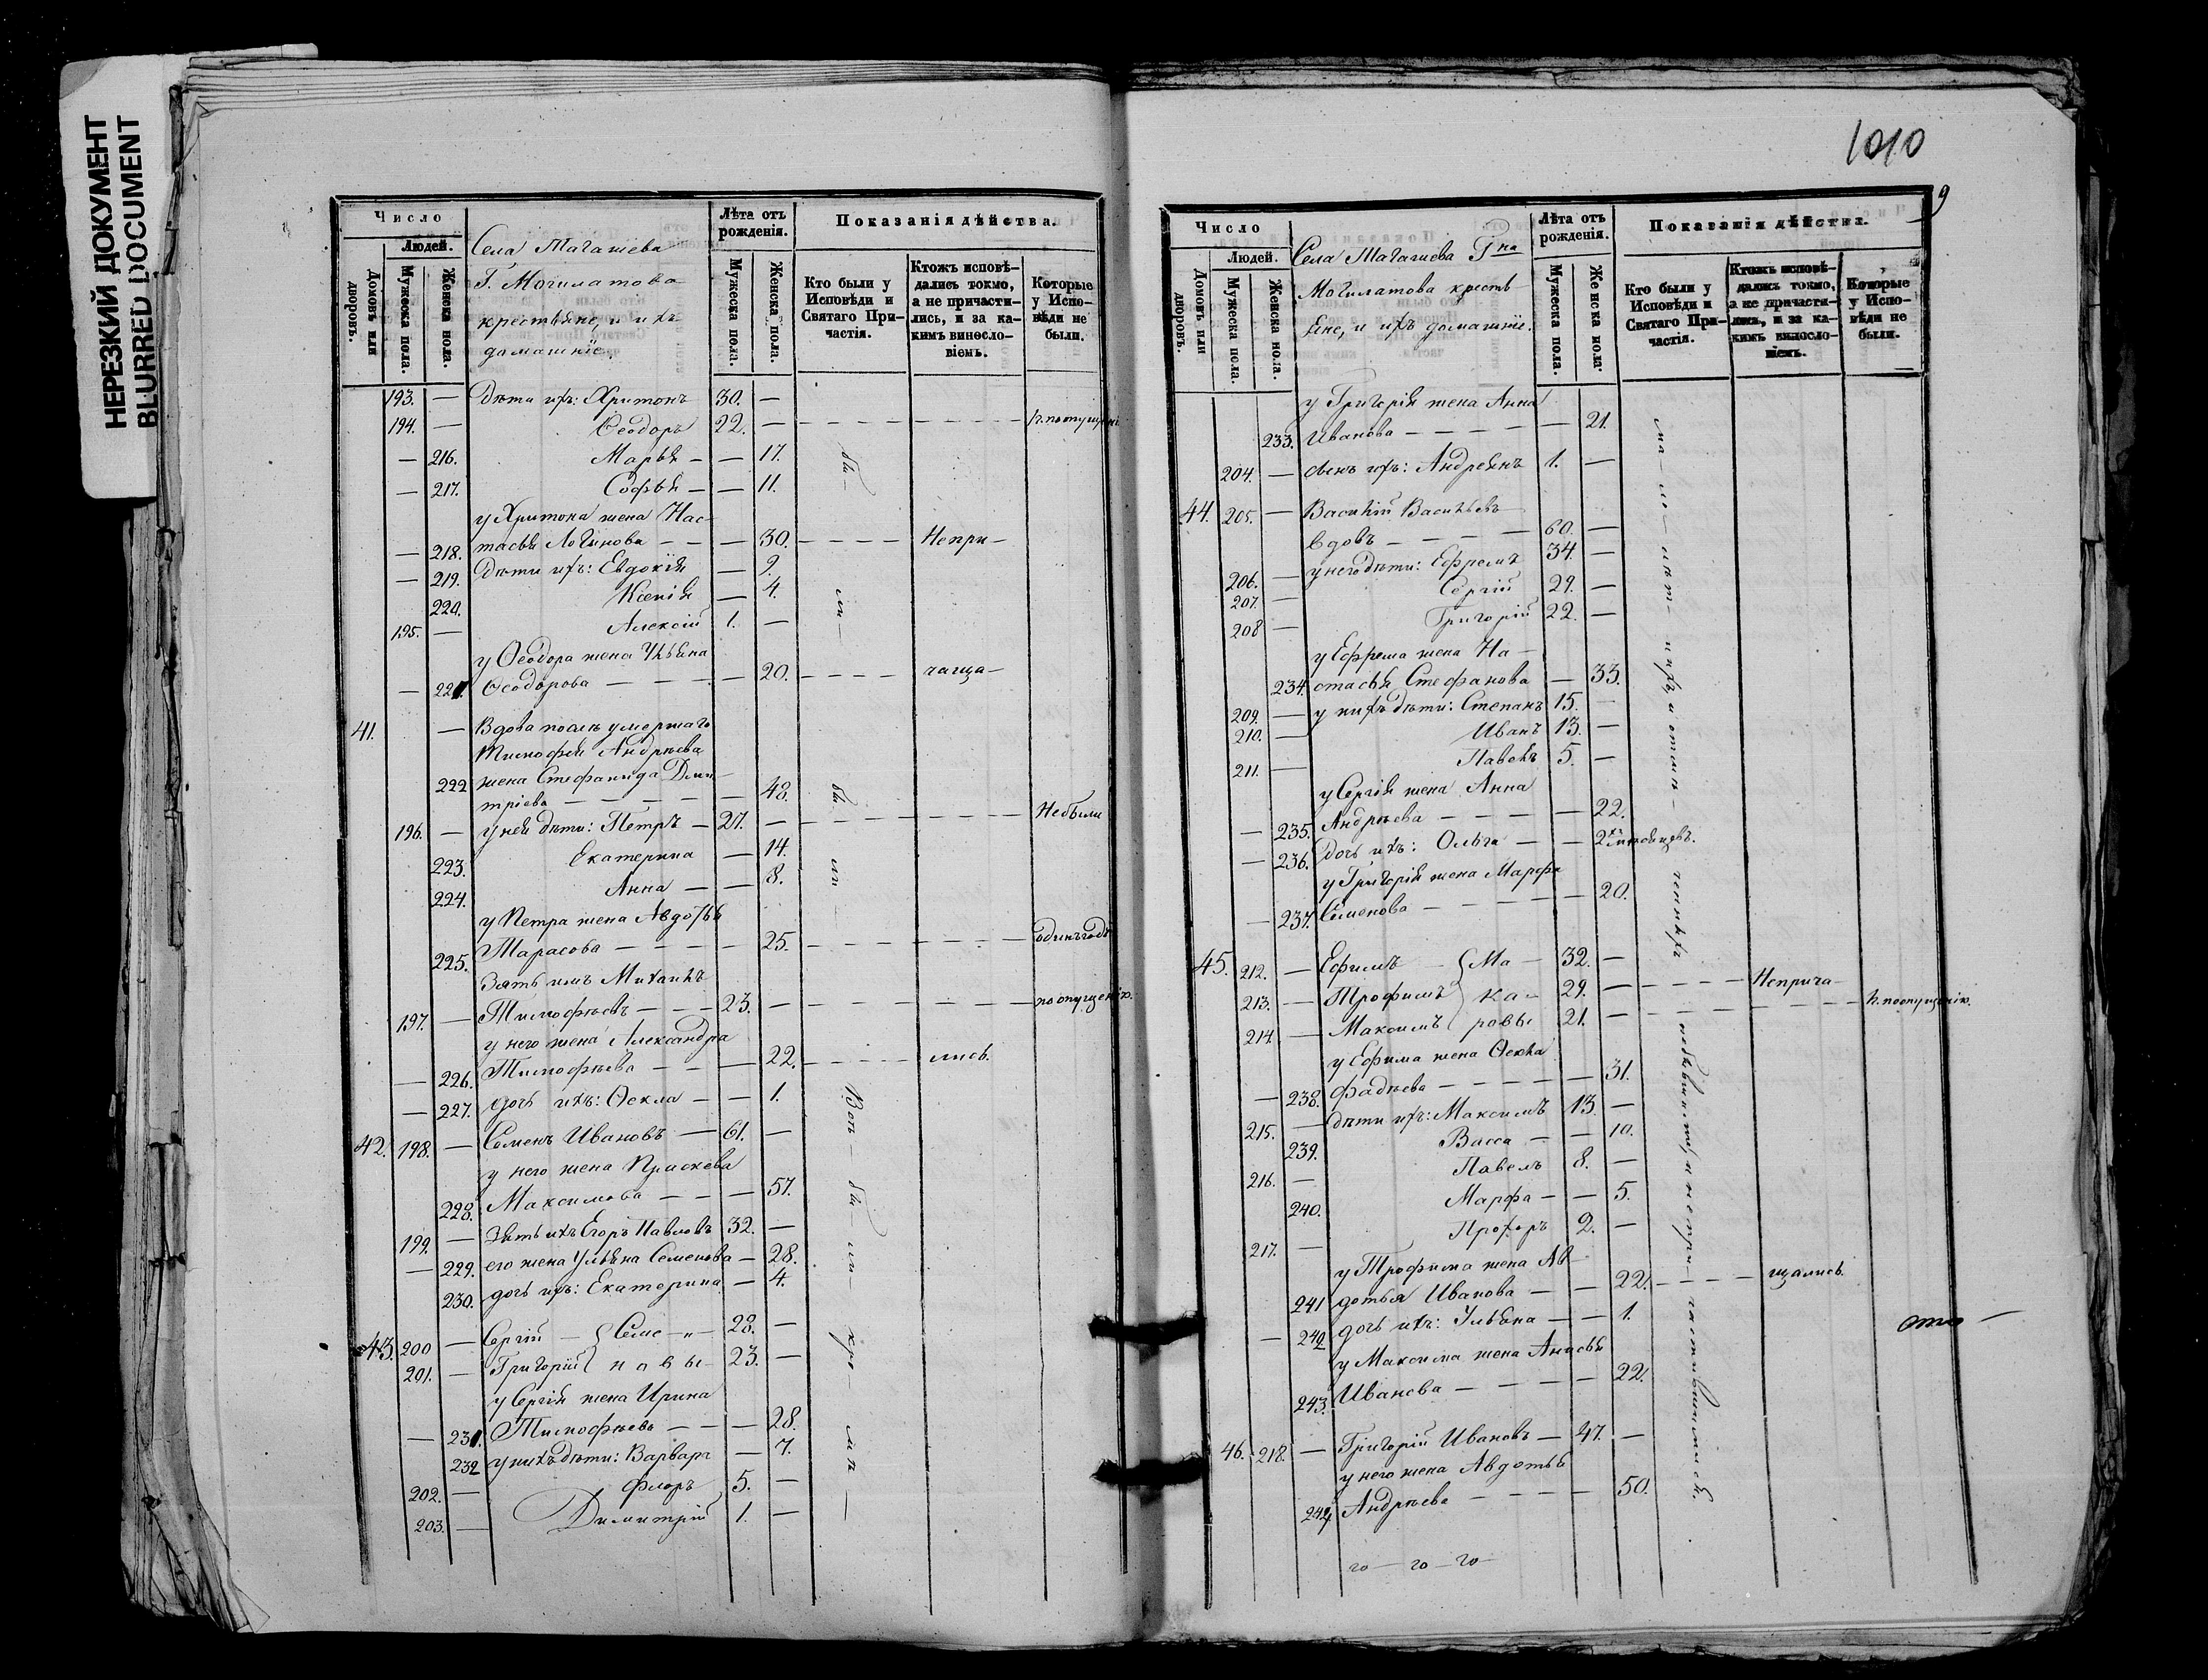 НЕРЕЗКИЙ ДОКУМЕНТ
BLURRED DOCUMENT
Число
Людей.
Домовъ или дворовъ.
Мужеска пола.
Женска пола.
Села Магашева
Г. Могилатова
крестьяне, и ихъ
домашніе.
Лѣта отъ рожденія.
Мужеска пола.
Женска пола.
Показанія дѣйства.
Кто были у Исповѣди и Святаго Причастія.
Ктожъ исповѣдались токмо, а не причастились, и за какимъ винословіемъ.
Которые у Исповѣди не были.
193. — Дѣти ихъ: Харитонъ 30. —
194. — Ѳеодоръ 22. — п. по опущені
— 216. Марья — — 17.
— 217. Софья — — 11.
у Харитона жена Нас-
— 218. тасья Логинова — — — 30. Непри-
— 219. Дѣти ихъ: Евдокія — 9.
220. Ксенія — 4.
195. — Алексій 1. —
у Ѳеодора жена Ульяна
— 221. Ѳеодорова — — — 20. чаща-
41. — Вдова послѣ умершаго
Тимофея Андрѣева
222 жена Стефанида Дми-
тріева — — — 48.
196. — у ней дѣти: Петръ — 27. — Небыли
223. Екатерина — 14.
224. Анна — — 8.
у Петра жена Авдотья
225. Тарасова — — — 25. одинъ годъ
Зять имъ Михаилъ
197. — Тимофѣевъ — — 23. — по опущенію.
у него жена Александра
— 226. Тимофѣева — — — 22. лись.
— 227. дочь ихъ: Ѳекла — — 1.
42. 198. — Семенъ Ивановъ — 61. —
у него жена Прасковья
228. Максимова — — — 57.
199. — Зять ихъ Егоръ Павловъ 32. —
— 229. его жена Ульяна Семенова — 28.
230. дочь ихъ: Екатерина — 4.
43. 200 — Сергій — { Семе — 28. —
201. — Григорій { новы — 23. —
у Сергія жена Ирина
— 231. Тимофѣева — — — 28.
232 у нихъ дѣти: Варвара — 7.
202. — Флоръ 5. —
203. — Димитрій 1. —
Вси — бы — ли — кро — мѣ —
1010
9
Число
Людей.
Домовъ или дворовъ.
Мужеска пола.
Женска пола.
Села Магашева Гна
Могилатова кресть
яне, и ихъ домашніе.
Лѣта отъ рожденія.
Мужеска пола.
Женска пола.
Показанія дѣйства.
Кто были у Исповѣди и Святаго Причастія.
Ктожъ исповѣдались токмо, а не причастились, и за какимъ винословіемъ.
Которые у Исповѣди не были.
у Григорія жена Анна
233. Иванова — — — — 21.
204. — сынъ ихъ: Андреянъ 1. —
44. 205. — Василій Васильевъ
вдовъ — — — 60. —
206. — у него дѣти: Ефремъ 34. —
207. — Сергій 29. —
208 — Григорій 22. —
у Ефрема жена На-
234. стасья Стефанова — 33.
209. — у нихъ дѣти: Степанъ 15. —
210. — Иванъ 13. —
211. — Павелъ 5. —
у Сергія жена Анна
— 235. Андрѣева — — — — 22.
— 236. дочь ихъ: Ольга — — 2хъ мѣсяцевъ.
у Григорія жена Марфа
— 237. Семенова — — — — 20.
45. 212. — Ефимъ — { Ма — 32. —
213. — Трофимъ { ка — 29. — Неприча-
214 — Максимъ { ровы 21. — п. по опущенію.
у Ефима жена Ѳекла
— 238. Фадѣева — — — — 31.
215. — дѣти ихъ: Максимъ 13. —
239. Васса — — 10.
216. — Павелъ 8. —
240. Марфа — — 5.
217. — Прохоръ 2. —
у Трофима жена Ав-
241 дотья Иванова — — 22. щались.
— 242 дочь ихъ: Ульяна — — 1.
у Максима жена Анисья
243. Иванова — — — — 22.
46. 218. — Григорій Ивановъ — 47. —
у него жена Авдотья
244 Андрѣева — — — — 50.
го — го — го —